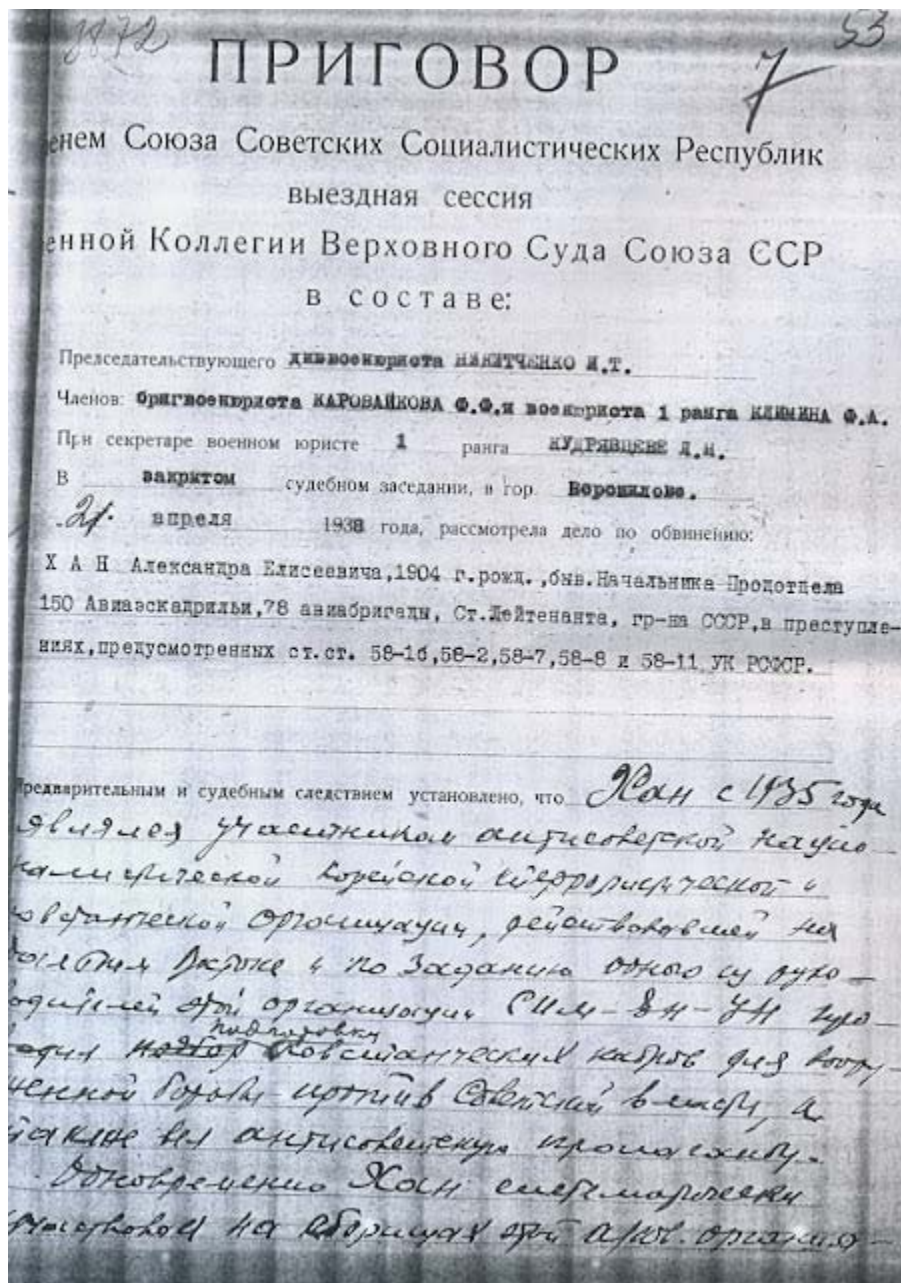 1872
53
ПРИГОВОР
7
енем Союза Советских Социалистических Республик
выездная сессия
енной Коллегии Верховного Суда Союза ССР
в составе:
Председательствующего диввоенюриста НИКИТЧЕНКО И.Т.
Членов: бригвоенюриста КАРОВАЙКОВА Ф.Ф.и военюриста 1 ранга КЛИМИНА Ф.А.
При секретаре военном юристе 1 ранга КУДРЯВЦЕВЕ Л.Н.
В закрытом судебном заседании, в гор. Ворошилове.
21. апреля 1938 года, рассмотрела дело по обвинению:
Х А Н Александра Елисеевича,1904 г.рожд.,быв.Начальника Продотдела
150 Авиаэскадрильи,78 авиабригады, Ст.Лейтенанта, гр-на СССР,в преступле-
ниях,предусмотренных ст.ст. 58-1б,58-2,58-7,58-8 и 58-11 УК РСФСР.
Предварительным и судебным следствием установлено, что Хан с 1935 года
являлся участником антисоветской нацио-
налистической корейской террористической и
овстанческой организации, действовавшей на
Востоке и по заданию одного из руко-
водителей этой организации про-
подготовку
повстанческих кадров для воору-
женной борьбы против Советской власти, а
также вел антисоветскую пропаганду.
Одновременно Хан систематически
участвовал на сборищах этой организа-